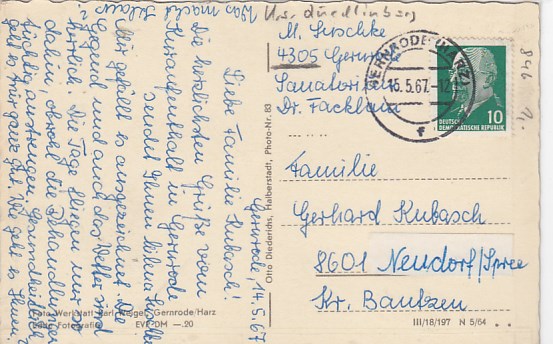 Krs. Quedlinburg
M. Sirschke
4305 Gernrode
Sanatorium
Dr. Facklam
GERNRODE (HARZ)
15.5.67.-12
f
10
DEUTSCHE
DEMOKRATISCHE REPUBLIK
846
1,-
Familie
Gerhard Kubasch
8601 Neudorf/Spree
Kr. Bautzen
III/18/197 N 5/64
Otto Diederichs, Halberstadt, Photo-Nr. 83
Gernrode, 14.5.67
Liebe Familie Kubasch!
Die herzlichsten Grüße vom
Kuraufenthalt in Gernrode
sendet Ihnen
Mir gefällt es ausgezeichnet. Die
Gegend und auch das Wetter sind
herrlich. Die Tage fliegen nur so
dahin, obwohl die Behandlungen
tüchtig anstrengen. Gesundheitlich
geht es mir ganz gut. Wie geht es Ihnen?
Was macht
Klaus?
Foto-Werkstatt Karl Rüger, Gernrode/Harz
Echte Fotografie EVP DM —.20